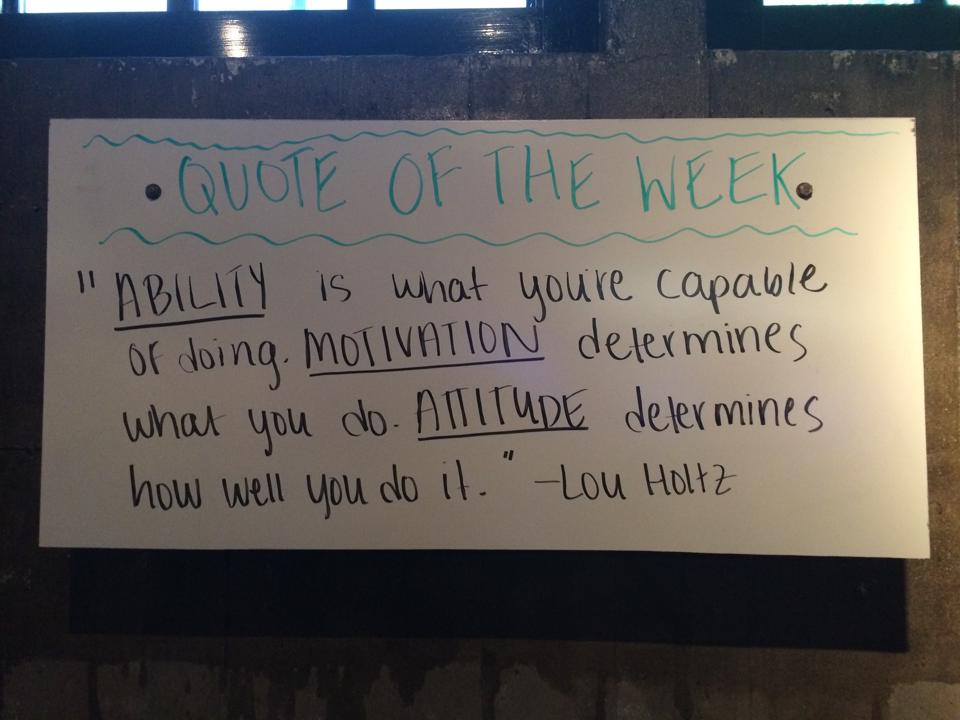 QUOTE OF THE WEEK
" ABILITY is what you're capable
of doing. MOTIVATION determines
what you do. ATTITUDE determines
how well you do it. " -Lou Holtz